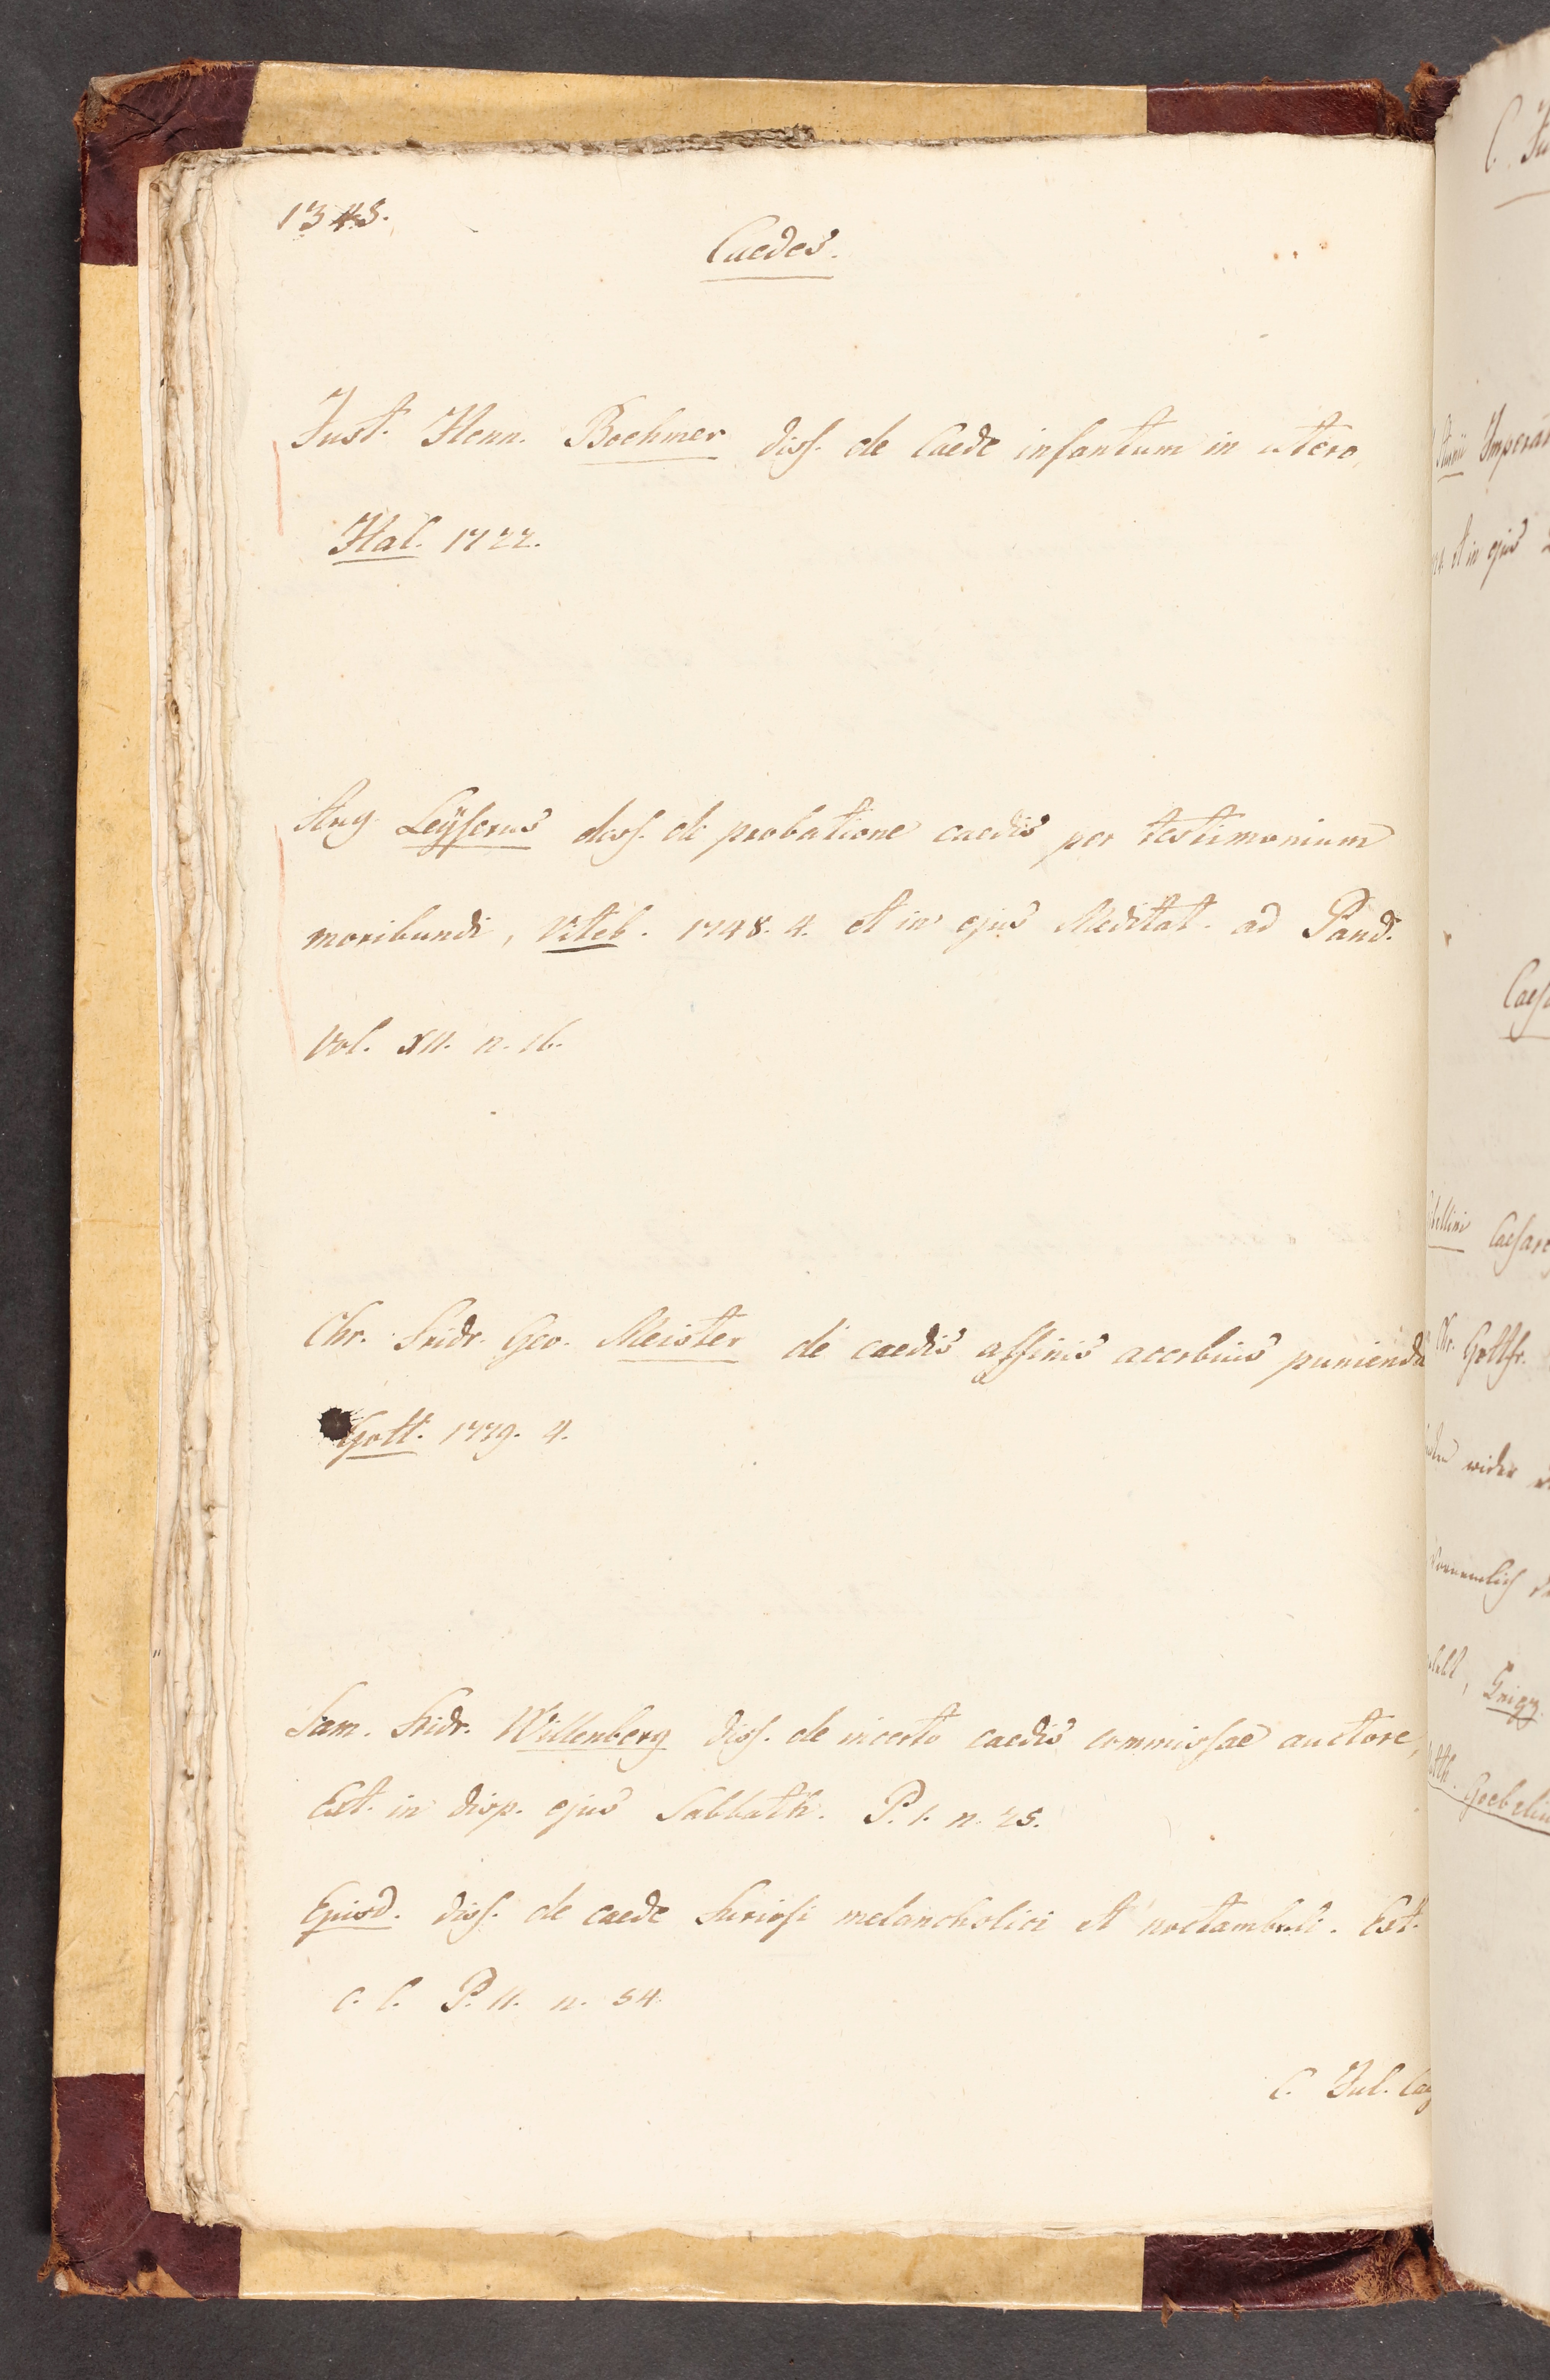 1348.
Caedes.
Just. Henn. Boehmer diss. de Caede infantum in utero,
Hal. 1722.
Aug Leÿserus diss. de probatione caedis per testimonium
moribundi, Viteb. 1748. 4. et in ejus Meditat. ad Pand.
Vol. XII. n. 16.
Chr. Fridr. Geo. Meister de caedis affinis acerbius punienda
Gott. 1779. 4.
Sam. Fridr. Willenberg diss. de incerto caedis commissae auctore,
Ext. in disp. ejus Sabbath. P. I. n. 25.
Ejusd. diss. de caede furiosi melancholici et noctambuli. Ext.
c. l. P. II. n. 54.
C. Jul.
Imperat
et in ejus
Caesare
Chr. Gottfr.
wider